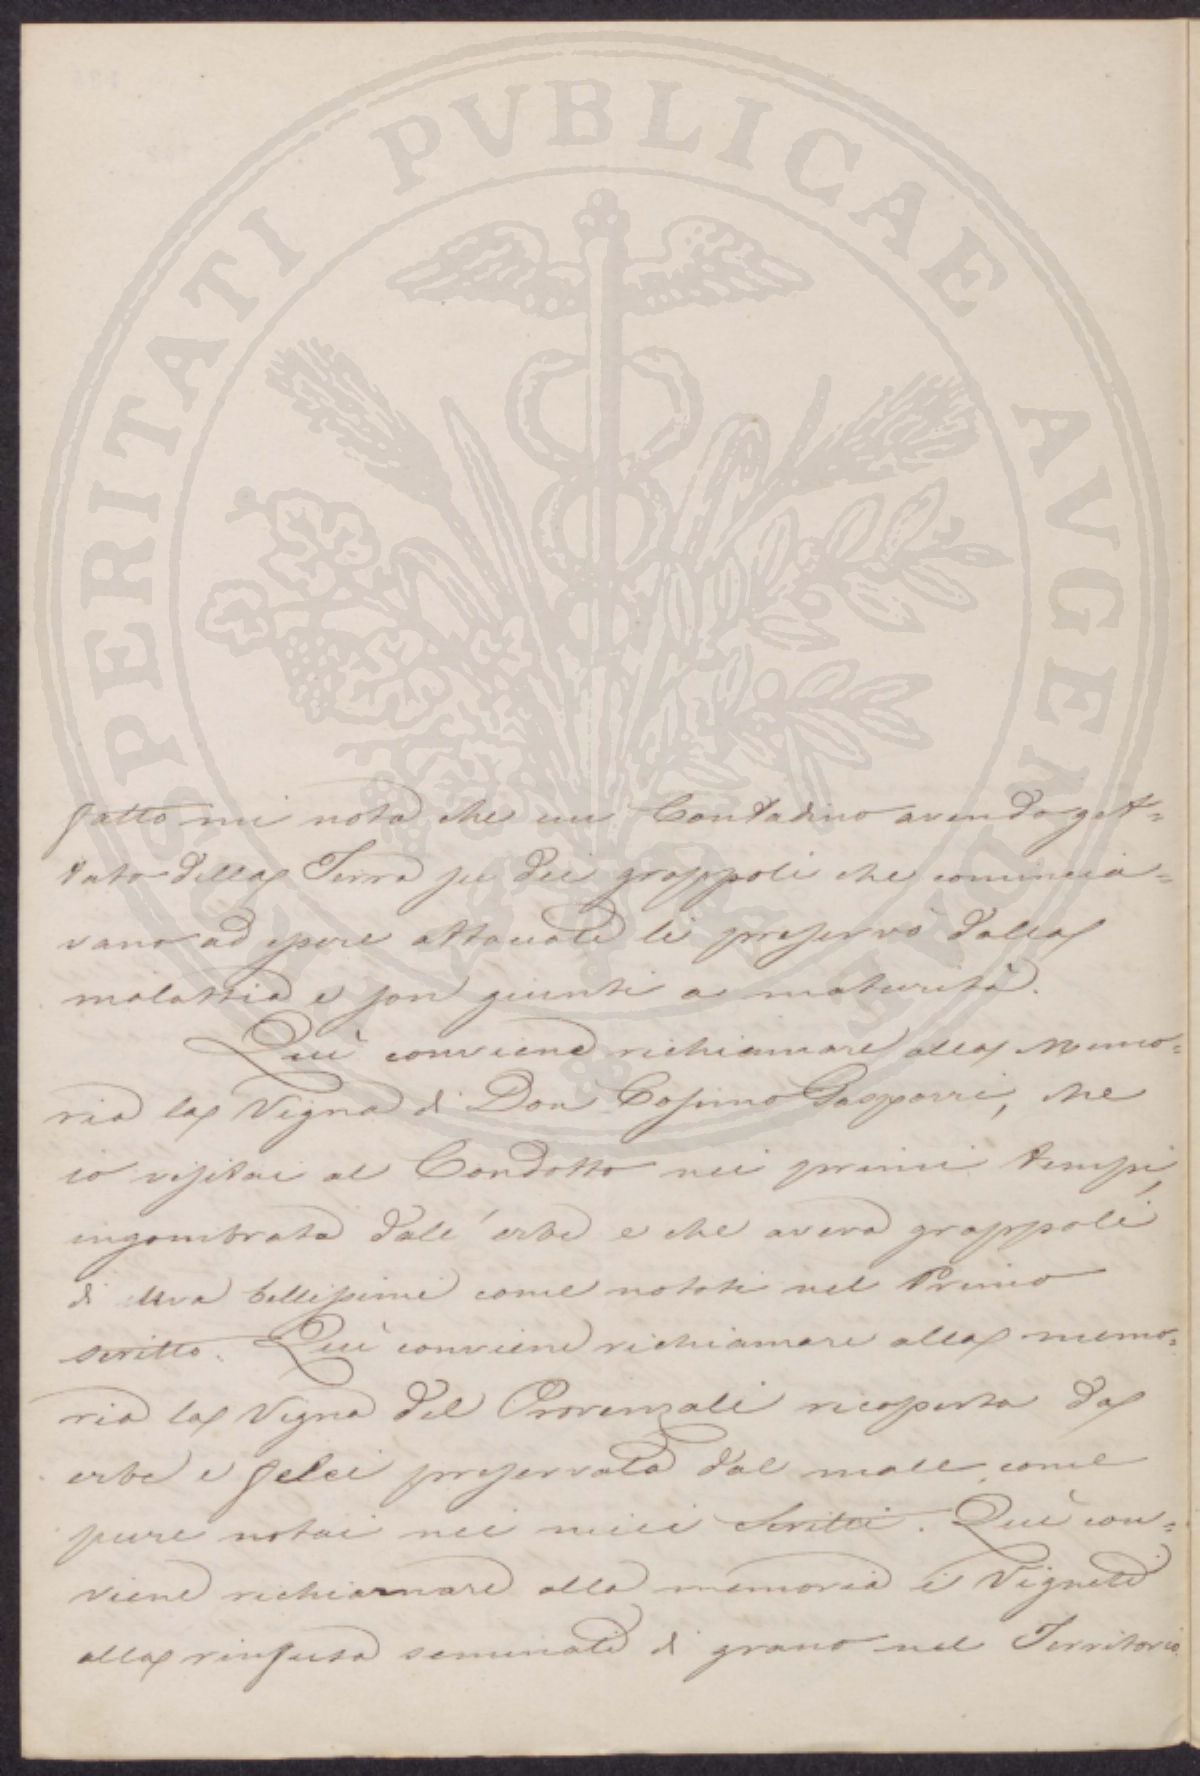 PROSPERITATI PVBLICAE AVGENDAE
fatto mi nota che un Contadino avendo get=
tato della Terra su dei grappoli che comincia=
vano ad essere attaccati li preservò dalla
malattia e son giunti a maturità.
Quì conviene richiamare alla memo=
ria la Vigna di Don Cosimo Gasparri, che
io visitai al Condotto nei primi tempi,
ingombrata dall'erbe e che aveva grappoli
di Uva bellissimi come notati nel Primo
scritto. Quì conviene richiamare alla memo=
ria la Vigna del Provenzali ricoperta da
erbe e felci preservata dal male come
pure notai nei miei Scritti. Quì con=
viene richiamare alla memoria i Vigneti
alla rinfusa seminati di grano nel Territorio